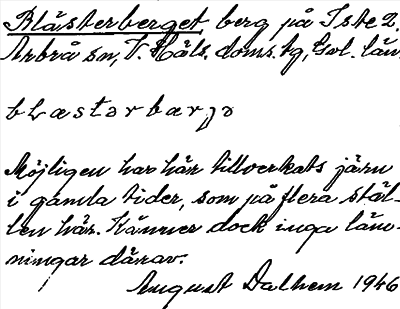 Blästerberget, berg på Iste 2.
Arbrå sn, V. Häls. doms.tg, Gvl. län
blæstərbærjə
Möjligen har här tillverkats järn
i gamla tider, som på flera stäl-
len här. Känner dock inga läm-
ningar därav.
August Dalhem 1946